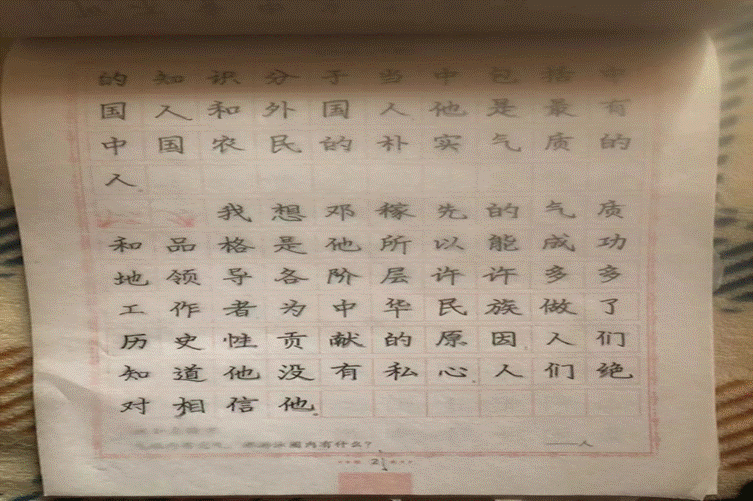 的知识分子当中包括中
国人和外国人他是最有
中国农民的朴实气质的
人。
我想邓稼先的气质
和品格是他所以能成功
地领导各阶层许许多多
工作者为中华民族做了
历史性贡献的原因人们
知道他没有私心。人们绝
对相信他。
泳圈内有什么? ——人
2